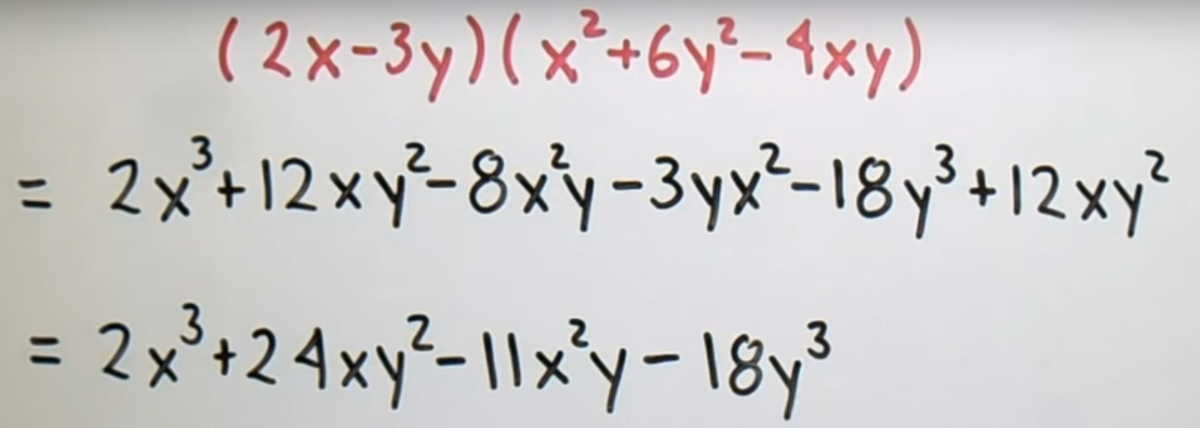 (2x-3y)(x²+6y²-4xy)
= 2x³+12xy²-8x²y-3yx²-18y³+12xy²
= 2x³+24xy²-11x²y-18y³